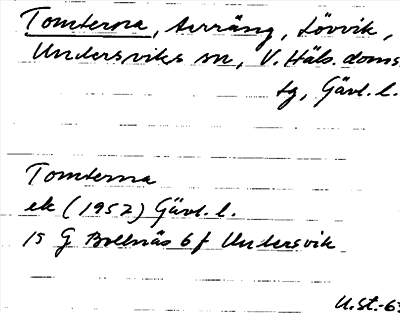 Tomterna, terräng, Lövvik,
Undersviks sn, V. Häls. doms.
tg, Gävl. l.
Tomterna
ek (1952) Gävl. l.
15 G Bollnäs 6 f Undersvik
U.St.-63